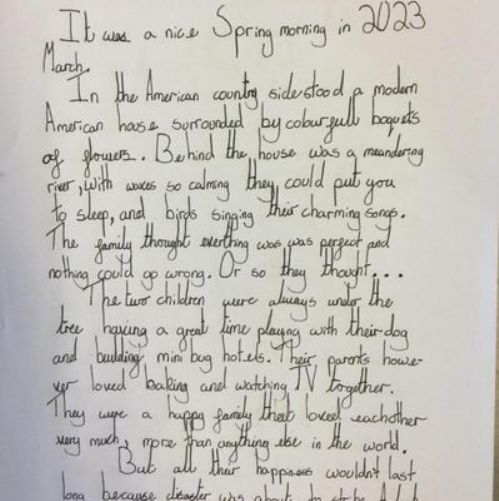 It was a nice Spring morning in 2023
March.
In the American country side stood a modern
American house surrounded by colourgull boquets
og glowers. Behind the house was a meandering
river, with waves so calming they could put you
to sleep, and birds singing their charming songs.
The gamily thought everthing was was pergect and
nothing could go wrong. Or so they thought...
The two children were always under the
tree having a great time playing with their dog
and building mini bug hotels. Their parents howe-
ver loved baking and watching TV together.
They were a happy gamily that loved eachother
very much, more than anything else in the world.
But all their happiness wouldn't last
long because disaster was about to